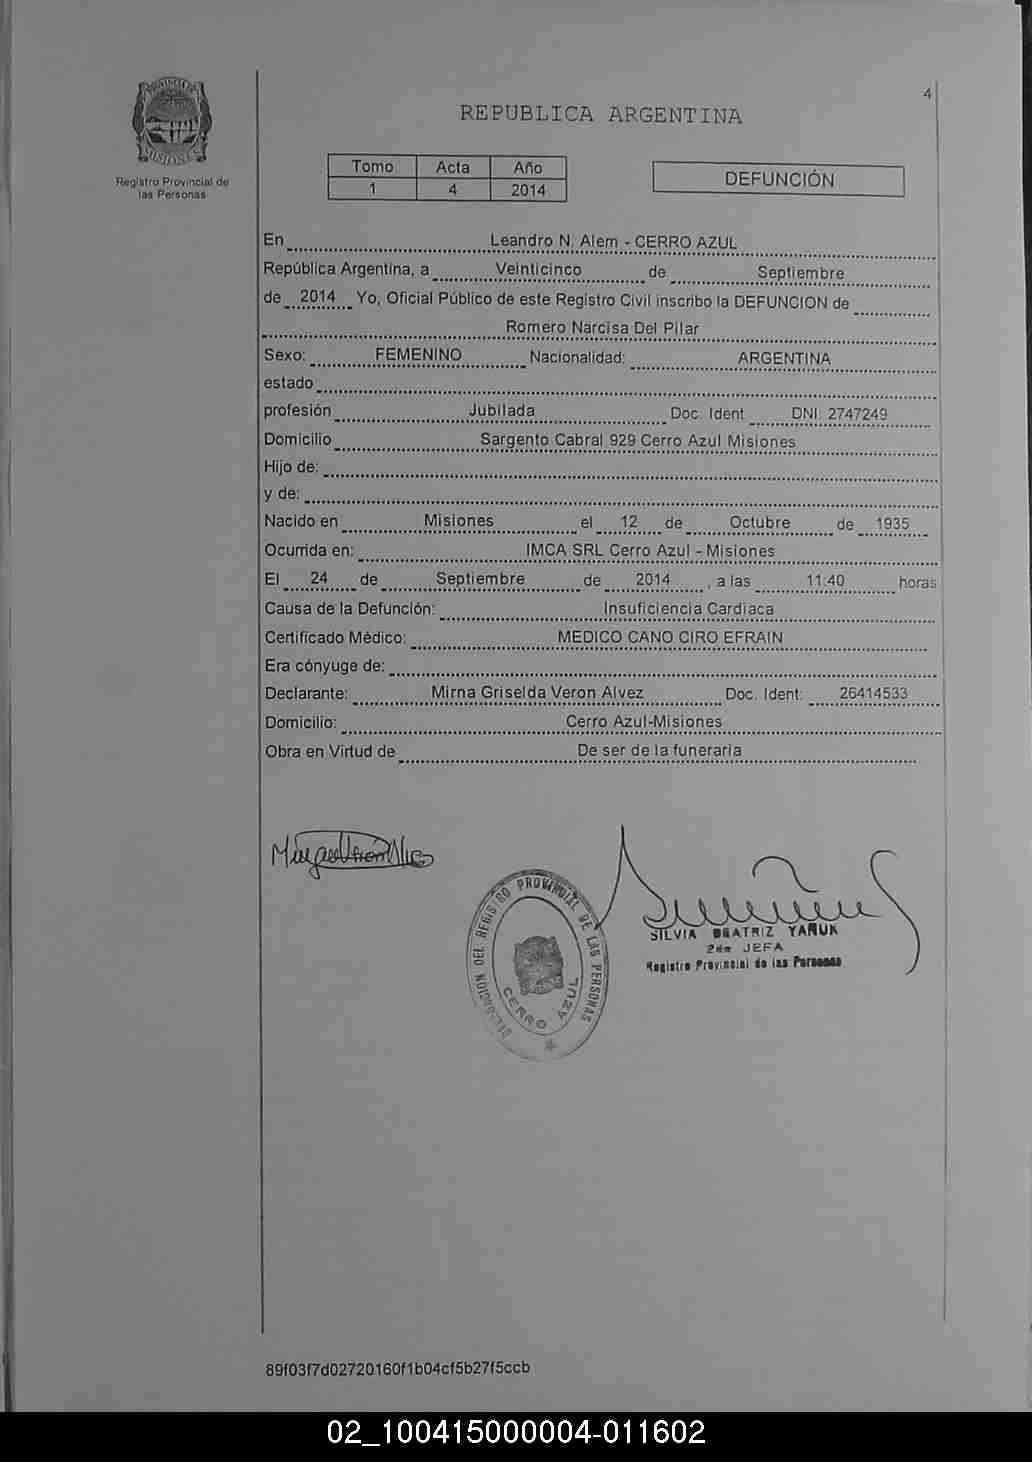 4
REPUBLICA ARGENTINA
PROVINCIA DE
MISIONES
Registro Provincial de
las Personas
Tomo Acta Año
1 4 2014
DEFUNCIÓN
En Leandro N. Alem - CERRO AZUL
República Argentina, a Veinticinco de Septiembre
de 2014 Yo, Oficial Público de este Registro Civil inscribo la DEFUNCION de
Romero Narcisa Del Pilar
Sexo: FEMENINO Nacionalidad: ARGENTINA
estado
profesión Jubilada Doc. Ident DNI: 2747249
Domicilio Sargento Cabral 929 Cerro Azul Misiones
Hijo de:
y de:
Nacido en Misiones el 12 de Octubre de 1935
Ocurrida en: IMCA SRL Cerro Azul - Misiones
El 24 de Septiembre de 2014, a las 11:40 horas
Causa de la Defunción: Insuficiencia Cardiaca
Certificado Médico: MEDICO CANO CIRO EFRAIN
Era cónyuge de:
Declarante: Mirna Griselda Veron Alvez Doc. Ident: 26414533
Domicilio: Cerro Azul-Misiones
Obra en Virtud de De ser de la funeraria
DELEGACION DEL REGISTRO PROVINCIAL DE LAS PERSONAS
CERRO AZUL
SILVIA BEATRIZ YAÑUK
2da JEFA
Registro Provincial de las Personas
89f03f7d02720160f1b04cf5b27f5ccb
02_100415000004-011602